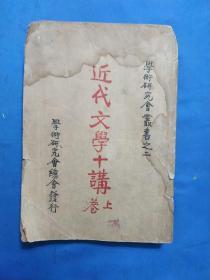 學術研究會叢書之二
近代文學十講
上卷
學術研究會總會發行